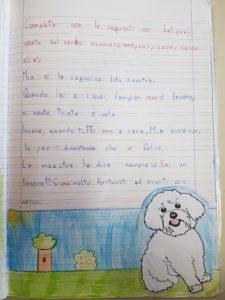 Completa con le seguenti voci del pre-
sente del verbo essere: sono, sei, siamo, siete,
è, è.
Mia è la cagnolina della maestra.
Quando lei e i suoi famigliari sono al lavoro,
si sente triste e sola.
Invece, quando tutti sono a casa, Mia scodinzo-
la per dimostrare che è felice.
La maestra le dice sempre: Sei un
tesoro!! Siamo molto fortunati ad averti con
noi